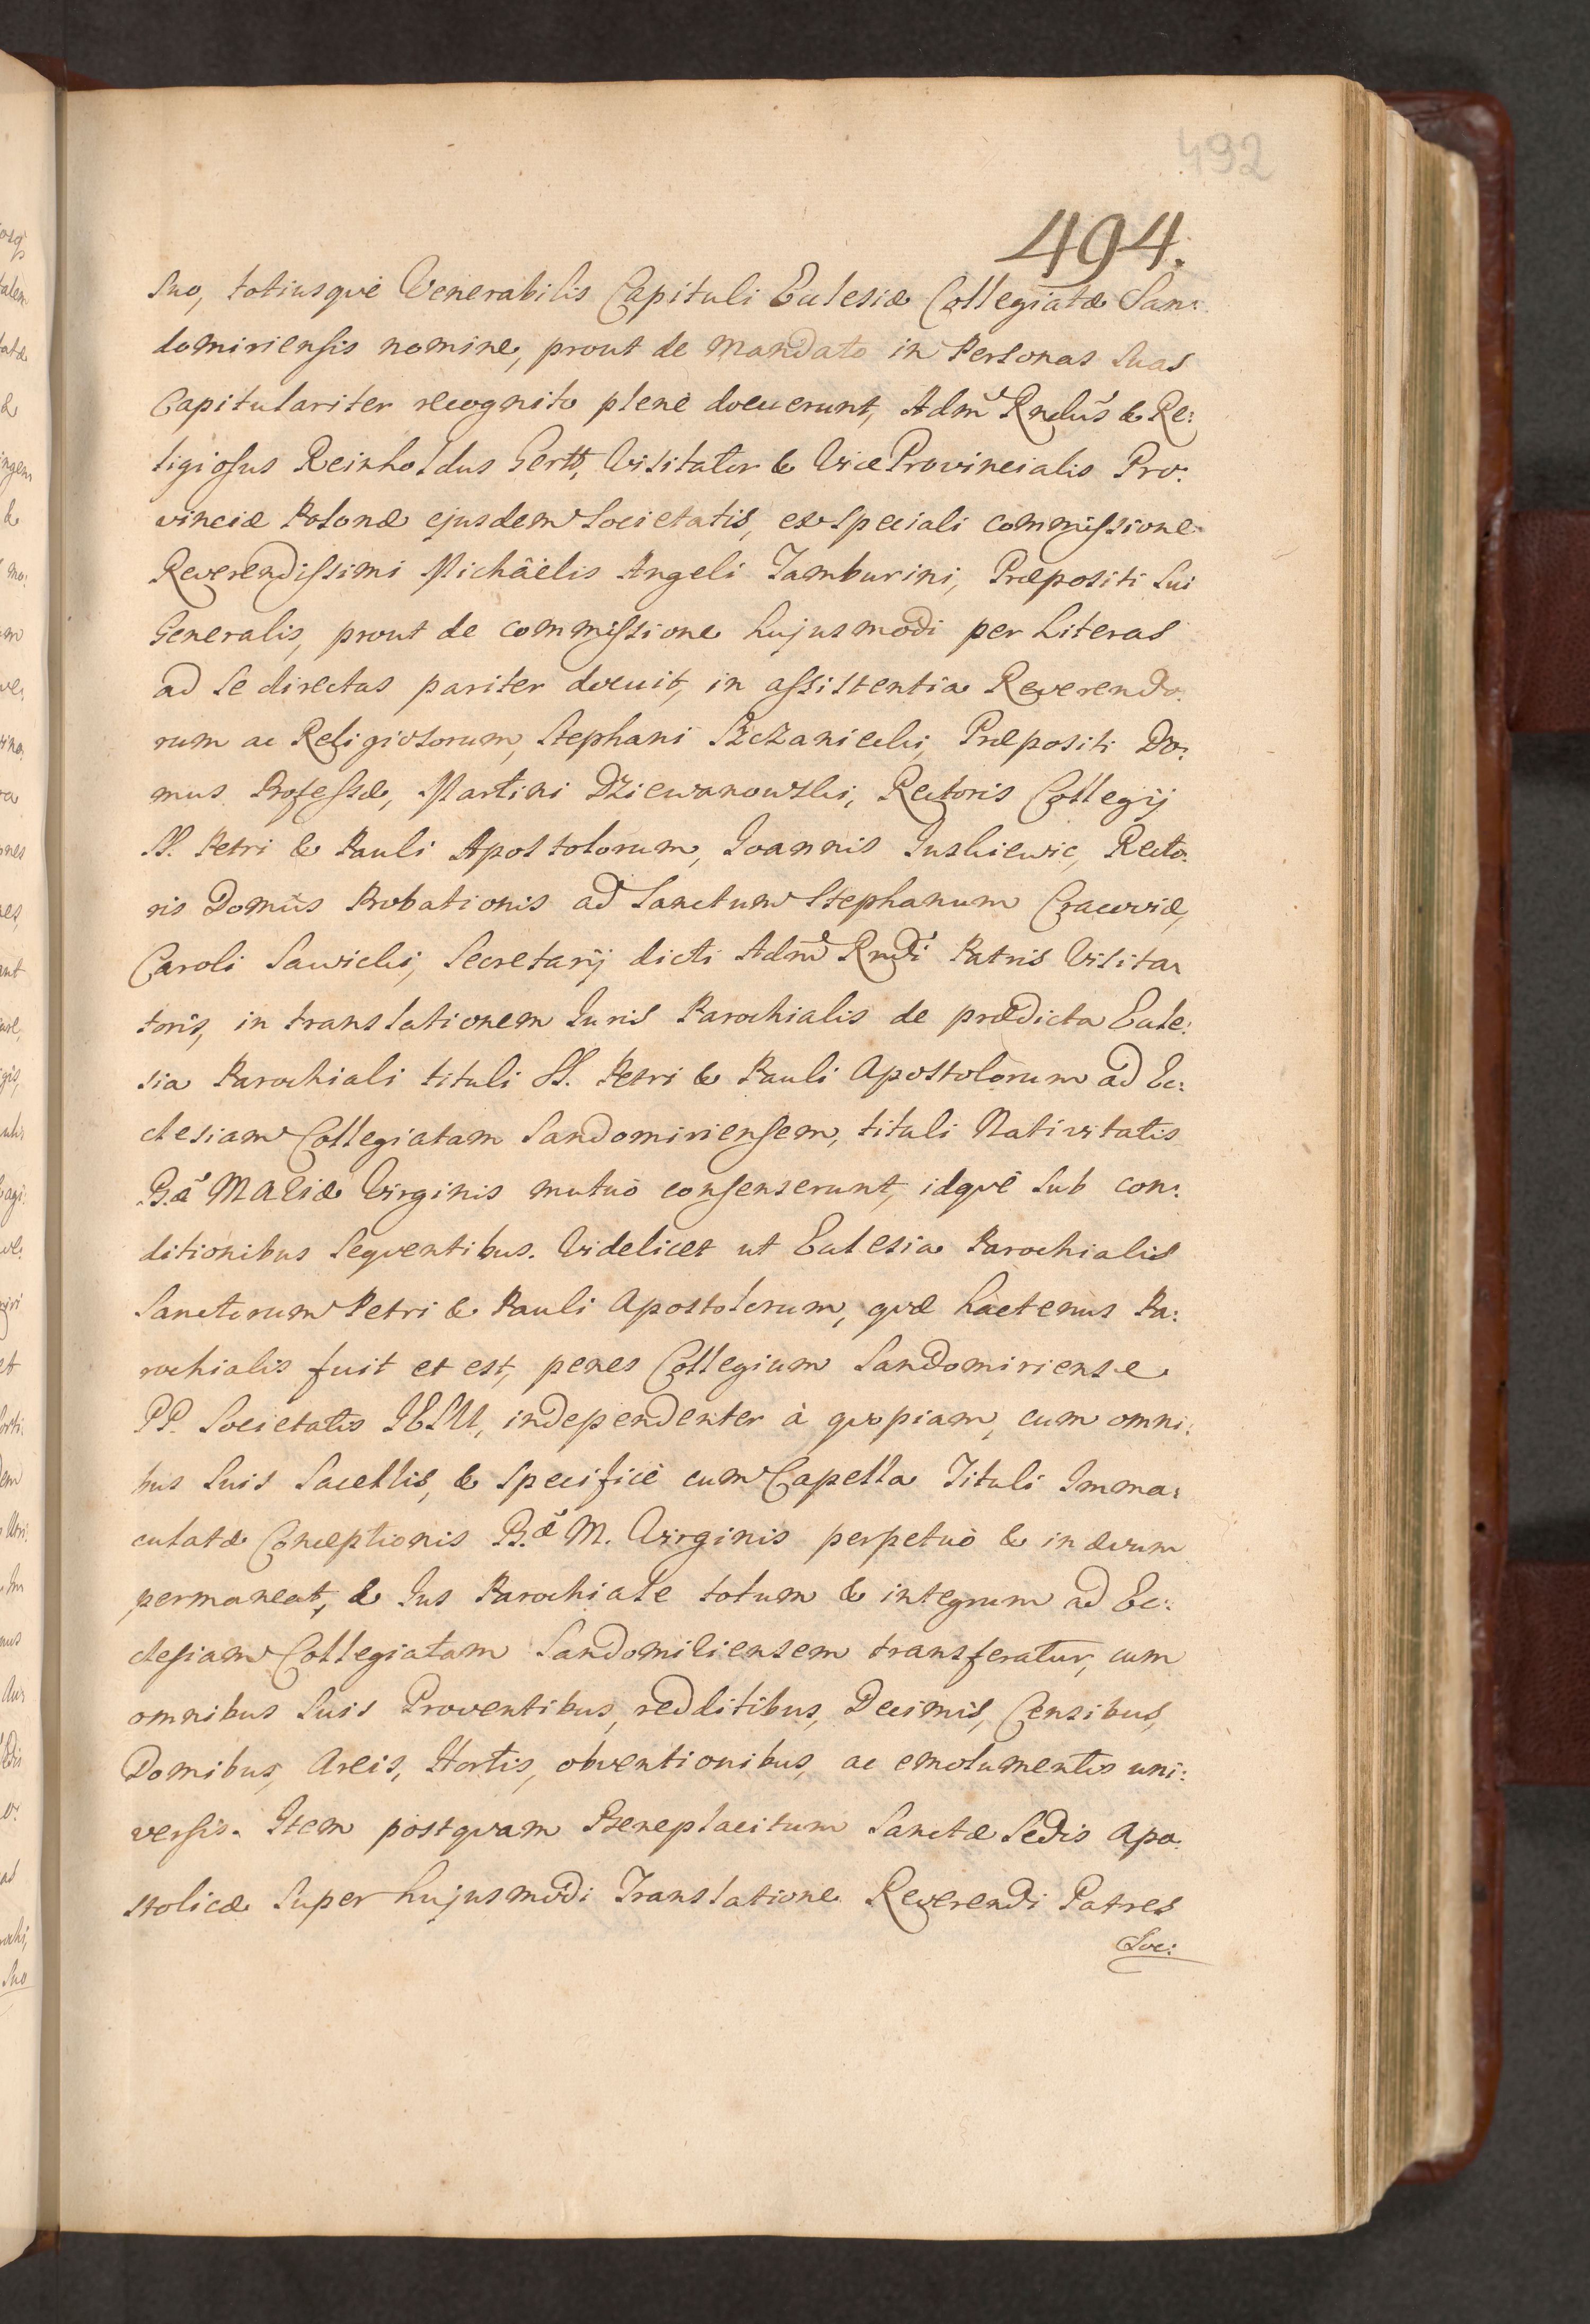 492
494.
suo, totiusqvè Venerabilis Capituli Ecclesiæ Collegiatæ San:
domiriensis nomine, prout de mandato in Personas suas
Capitulariter recognito plenè docuerunt, Admˢ Rndus & Re:
ligiosus Reinholdus Gertt, Visitator & Vice Provincialis Pro:
vinciæ Polonæ ejusdem Societatis, ex speciali commissione
Reverendissimi Michaëlis Angeli Tamburini, Præpositi sui
Generalis, prout de commissione hujusmodi per Literas
ad se directas pariter docuit, in assistentia Reverendo:
rum ac Religiosorum, Stephani Szczaniecki, Præpositi Do:
mus Professæ, Martini Dziewanowski, Rectoris Collegij
SS. Petri & Pauli Apostolorum, Joannis Juskiewic, Recto:
ris Domûs Probationis ad Sanctum Stephanum Cracoviæ,
Caroli Sawicki, Secretarij dicti Adm Rndi Patris Visita:
toris, in translationem Juris Parochialis de prædicta Eccle:
sia Parochiali tituli SS. Petri & Pauli Apostolorum ad Ec:
clesiam Collegiatam Sandomiriensem, tituli Nativitatis
B.æ MARIÆ Virginis mutuò consenserunt, idqvè sub con:
ditionibus seqventibus. Videlicet ut Ecclesia Parochialis
Sanctorum Petri & Pauli Apostolorum, qvæ hactenus Pa:
rochialis fuit et est, penes Collegium Sandomiriense
PP. Societatis JESU, independenter à qvopiam, cum omni:
bus suis Sacellis, & specificè cum Capella Tituli Imma:
culatæ Conceptionis B.æ M. Virginis perpetuò & in ævum
permaneat, & Jus Parochiale totum & integrum ad Ec:
clesiam Collegiatam Sandomiriensem transferatur, cum
omnibus suis Proventibus, redditibus, Decimis, Censibus,
Domibus, Areis, Hortis, obventionibus, ac emolumentis uni:
versis. Item postqvam Beneplacitum Sanctæ Sedis Apo:
stolicæ super hujusmodi Translatione Reverendi Patres
Soc: